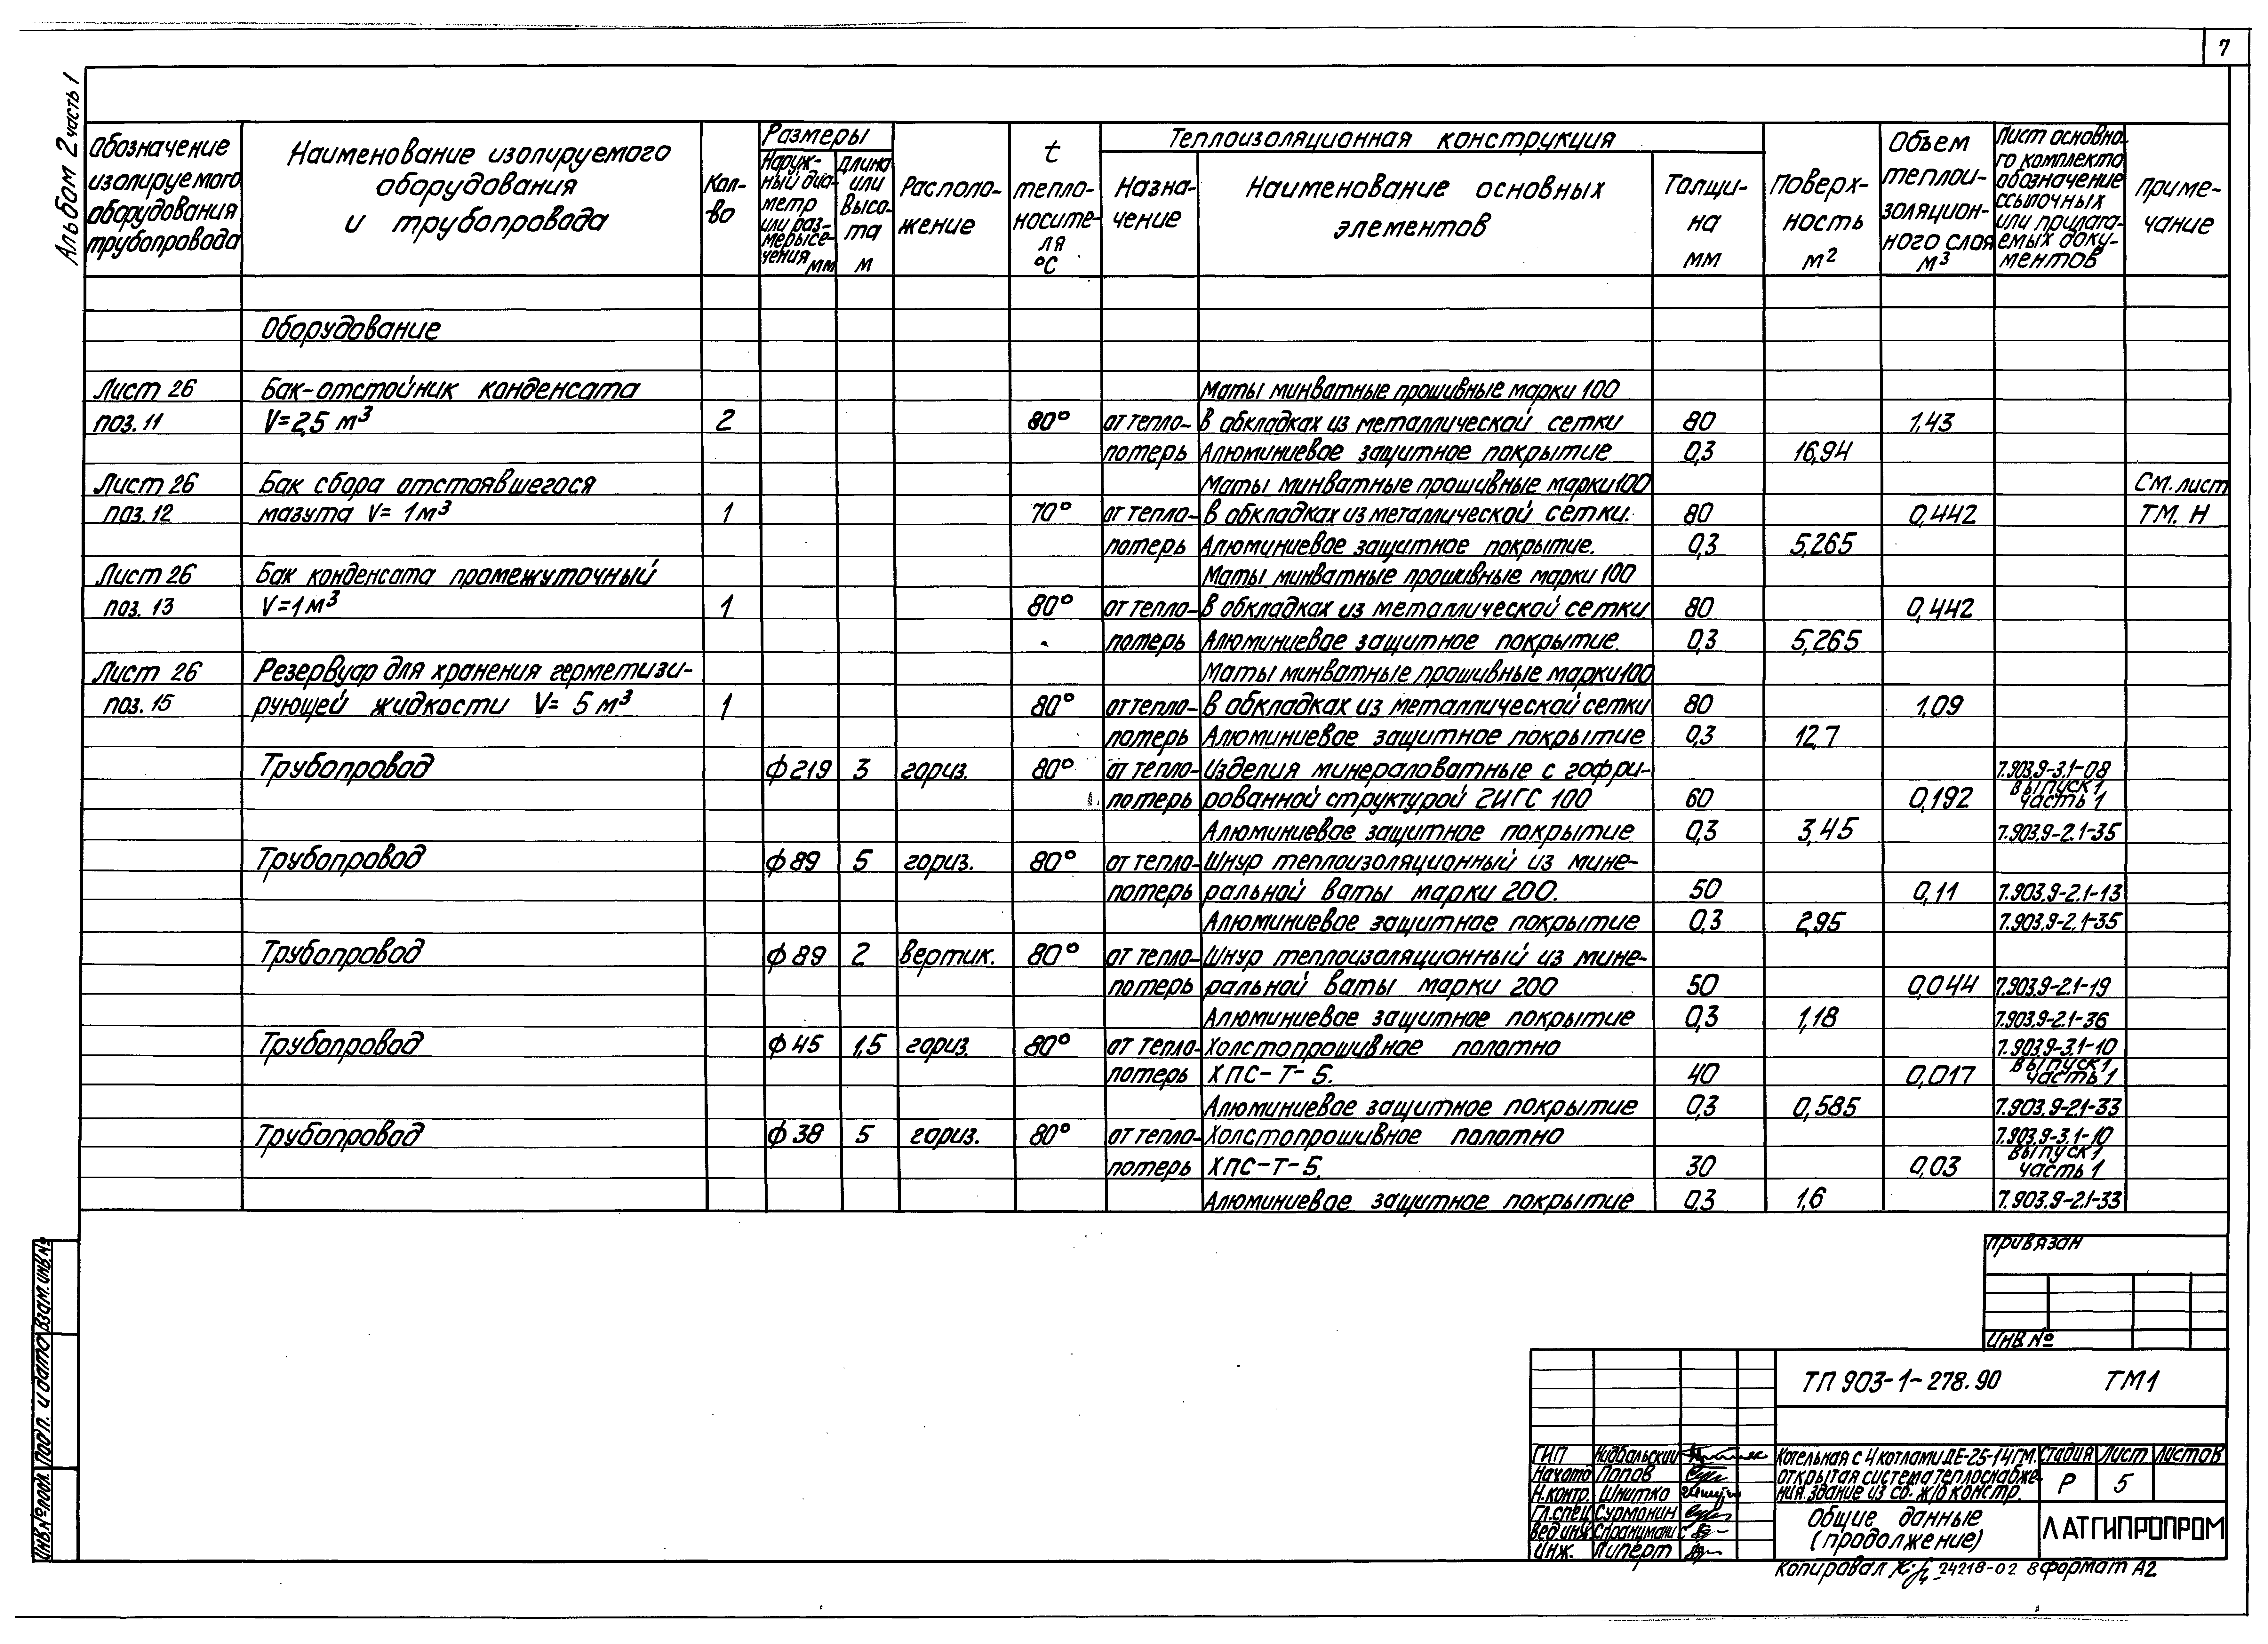 7
Альбом 2 часть 1
Обозначение изолируемого оборудования трубопровода
Наименование изолируемого оборудования и трубопровода
Кол-во
Размеры
Наруж-ный диа-метр или раз-меры се-чения мм
Длина или высо-та м
Располо-жение
t тепло-носите-ля °С
Теплоизоляционная конструкция
Назна-чение
Наименование основных элементов
Толщи-на мм
Поверх-ность м²
Объем теплои-золяцион-ного слоя м³
Лист основно-го комплекта обозначение ссылочных или прилага-емых доку-ментов
Приме-чание
Оборудование
Лист 26 Бак-отстойник конденсата Маты минватные прошивные марки 100
поз. 11 V=2,5 м³ 2 80° от тепло- в обкладках из металлической сетки 80 1,43
потерь Алюминиевое защитное покрытие 0,3 16,94
Лист 26 Бак сбора отстоявшегося Маты минватные прошивные марки 100 См. лист
поз. 12 мазута V= 1м³ 1 70° от тепло- в обкладках из металлической сетки. 80 0,442 ТМ. Н
потерь Алюминиевое защитное покрытие. 0,3 5,265
Лист 26 Бак конденсата промежуточный Маты минватные прошивные марки 100
поз. 13 V=1м³ 1 80° от тепло- в обкладках из металлической сетки. 80 0,442
потерь Алюминиевое защитное покрытие. 0,3 5,265
Лист 26 Резервуар для хранения герметизи- Маты минватные прошивные марки 100
поз. 15 рующей жидкости V= 5 м³ 1 80° от тепло- в обкладках из металлической сетки 80 1,09
потерь Алюминиевое защитное покрытие 0,3 12,7
Трубопровод ф 219 3 гориз. 80° от тепло- Изделия минераловатные с гофри- 7.903.9-3.1-08
потерь рованной структурой 2ИГС 100 60 0,192 выпуск 1 часть 1
Алюминиевое защитное покрытие 0,3 3,45 7.903.9-2.1-35
Трубопровод ф 89 5 гориз. 80° от тепло- Шнур теплоизоляционный из мине-
потерь ральной ваты марки 200. 50 0,11 7.903.9-2.1-13
Алюминиевое защитное покрытие 0,3 2,95 7.903.9-2.1-35
Трубопровод ф 89 2 вертик. 80° от тепло- Шнур теплоизоляционный из мине-
потерь ральной ваты марки 200 50 0,044 7.903.9-2.1-19
Алюминиевое защитное покрытие 0,3 1,18 7.903.9-2.1-36
Трубопровод ф 45 1,5 гориз. 80° от тепло- Холстопрошивное полотно 7.903.9-3.1-10
потерь ХПС-Т-5. 40 0,017 выпуск 1 часть 1
Алюминиевое защитное покрытие 0,3 0,585 7.903.9-2.1-33
Трубопровод ф 38 5 гориз. 80° от тепло- Холстопрошивное полотно 7.903.9-3.1-10
потерь ХПС-Т-5. 30 0,03 выпуск 1 часть 1
Алюминиевое защитное покрытие 0,3 1,6 7.903.9-2.1-33
Привязан
Инв. №
ТП 903-1-278.90 ТМ1
ГИП Нидбальский
Нач.отд Попов
Н.контр. Шнитко
Гл.спец Сурмонин
Вед.инж
Инж. Липерт
Котельная с 4 котлами ДЕ-25-14ГМ.
открытая система теплоснабже-
ния. здание из сб. ж/б констр.
Стадия Лист Листов
Р 5
Общие данные
(продолжение)
ЛАТГИПРОПРОМ
Копировал 24218-02 8 формат А2
Инв.№ подл. Подп. и дата Взам. инв.№